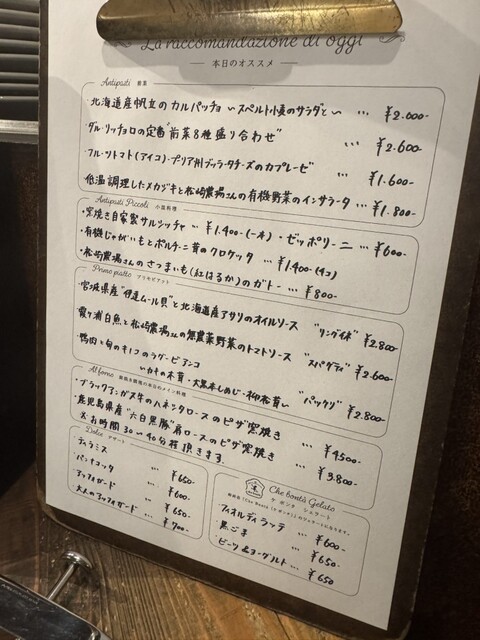 La raccomandazione di oggi
本日のオススメ
Antipasti 前菜
・北海道産帆立のカルパッチョ 〜スペルト小麦のサラダと〜 … ¥2.000-
・ダル・リッチョロの定番"前菜8種盛り合わせ" … ¥2.600-
・フルーツトマト(アイコ)・プリア州ブッラータチーズのカプレーゼ … ¥1.600-
低温調理したメカジキと松崎農場さんの有機野菜のインサラータ … ¥1.800-
Antipasti Piccoli 小菜料理
・窯焼き自家製サルシッチャ … ¥1.400-(一本) ・ゼッポリーニ … ¥600-
・有機じゃがいもとポルチーニ茸のクロケッタ … ¥1.400-(4コ)
・松崎農場さんのさつまいも(紅はるか)のガトー … ¥800-
Primo piatto プリモピアット
・宮城県産"伊達ムール貝"と北海道産アサリのオイルソース "リングイネ" ¥2.800-
霞ヶ浦白魚と松崎農場さんの無農薬野菜のトマトソース "スパゲティ" ¥2.600-
・鴨肉と旬のキノコのラグービアンコ
〜カキの木茸・大黒本しめじ・柳松茸〜 "パッケリ" ¥2.800-
Al forno
・ブラックアンガス牛のハネシタロースのピザ窯焼き … ¥4500-
・鹿児島県産"六白黒豚"肩ロースのピザ窯焼き … ¥3.800-
※お時間30〜40分程頂きます。
Dolce デザート
ティラミス … ¥650-
パンナコッタ … ¥600-
アッフォガード … ¥650-
大人のアッフォガード … ¥700-
Che bontà Gelato
ケ ボンタ ジェラート
フィオルディラッテ … ¥600-
黒ごま … ¥650-
ビーツ&ヨーグルト … ¥650